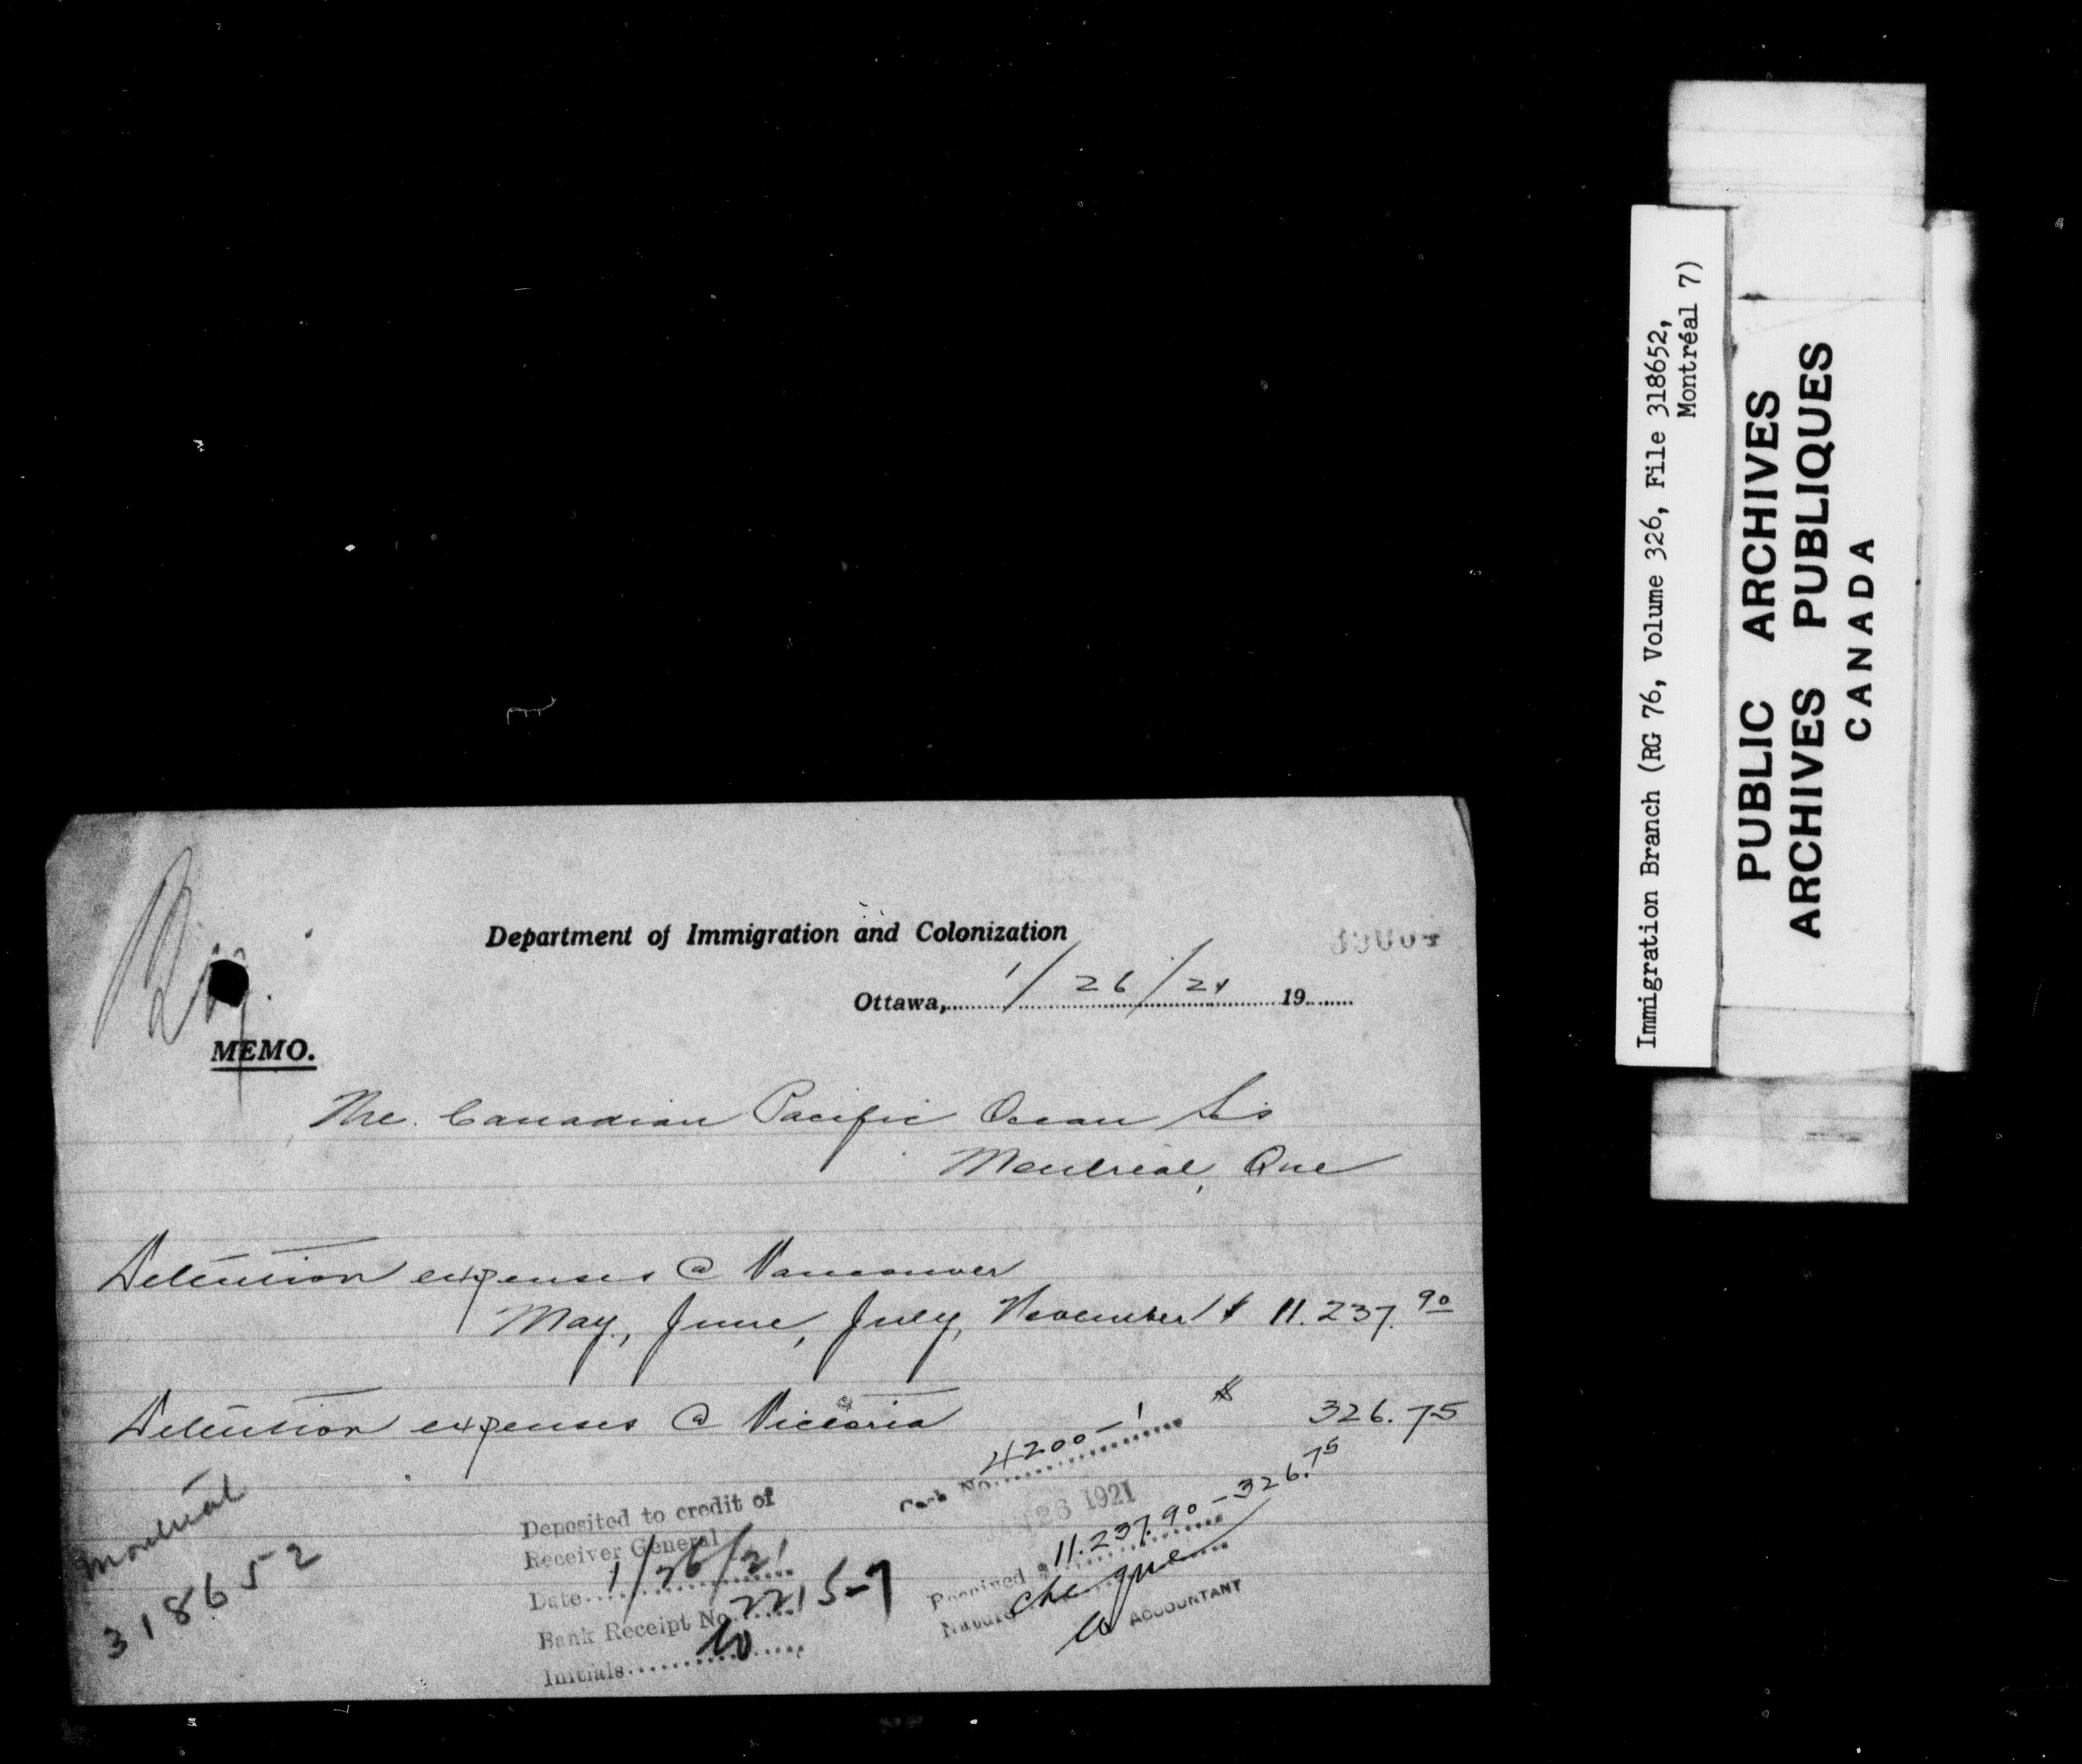 Department of Immigration and Colonization
Ottawa, 1/26/21 19
MEMO.
The Canadian Pacific Ocean
Montreal, Que
Detention expenses @ Vancouver
May, June, July, November $ 11.237.90
Detention expenses @ Victoria $ 326.75
Montreal
318652
Deposited to credit of
Receiver General
Date 1/26/21
Bank Receipt No. 2215-7
Initials
No. 4200-1
26 1921
Received $ 11.237.90 - 326.75
Nature cheque
ACCOUNTANT
Immigration Branch (RG 76, Volume 326, File 318652,
Montréal 7)
PUBLIC ARCHIVES
ARCHIVES PUBLIQUES
CANADA